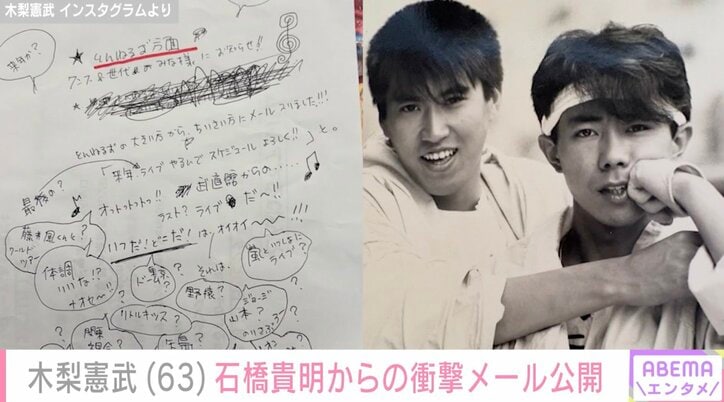 木梨憲武 インスタグラムより
来年か?
★ とんねるず方面
★ファンス&世代@のみな様におしらせ!!
とんねるずの大きい方から、ちいさい方にメール入りました!!!
「来年ライブやるんでスケジュールよろしく!!」と。
武道館からの.....
最後の?
オットットトっ!
ラスト? ライブ だ〜!!
いつだ!どこだ!は、オイオイ〜〜!!!
藤井風くんと?
ワールドツアー
体調いいな!?
ナオセ〜!
東京ドーム?
それは、
野猿?
嵐といっしょにライブ?
ジョージ山本?
リトルキッズ?
木梨憲武(63) 石橋貴明からの衝撃メール公開
ABEMA
エンタメ